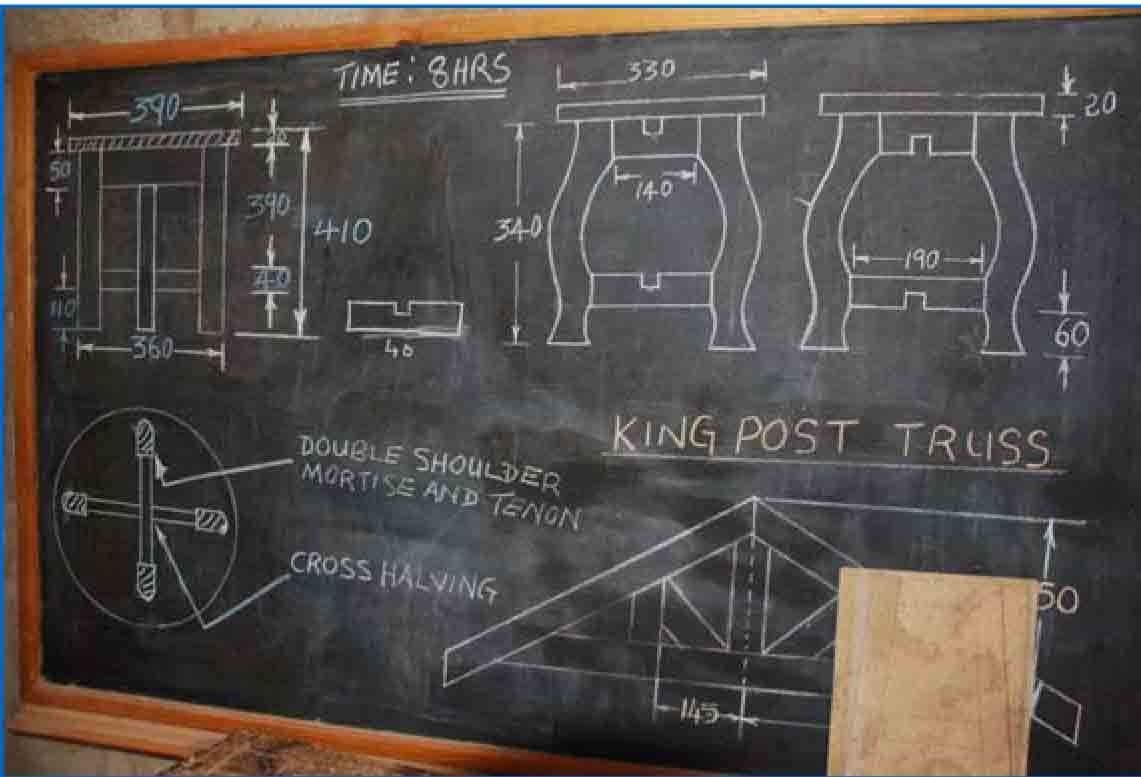 TIME: 8HRS
390
50
390
410
110
360
40
330
140
340
190
20
60
DOUBLE SHOULDER
MORTISE AND TENON
CROSS HALVING
KING POST TRUSS
145